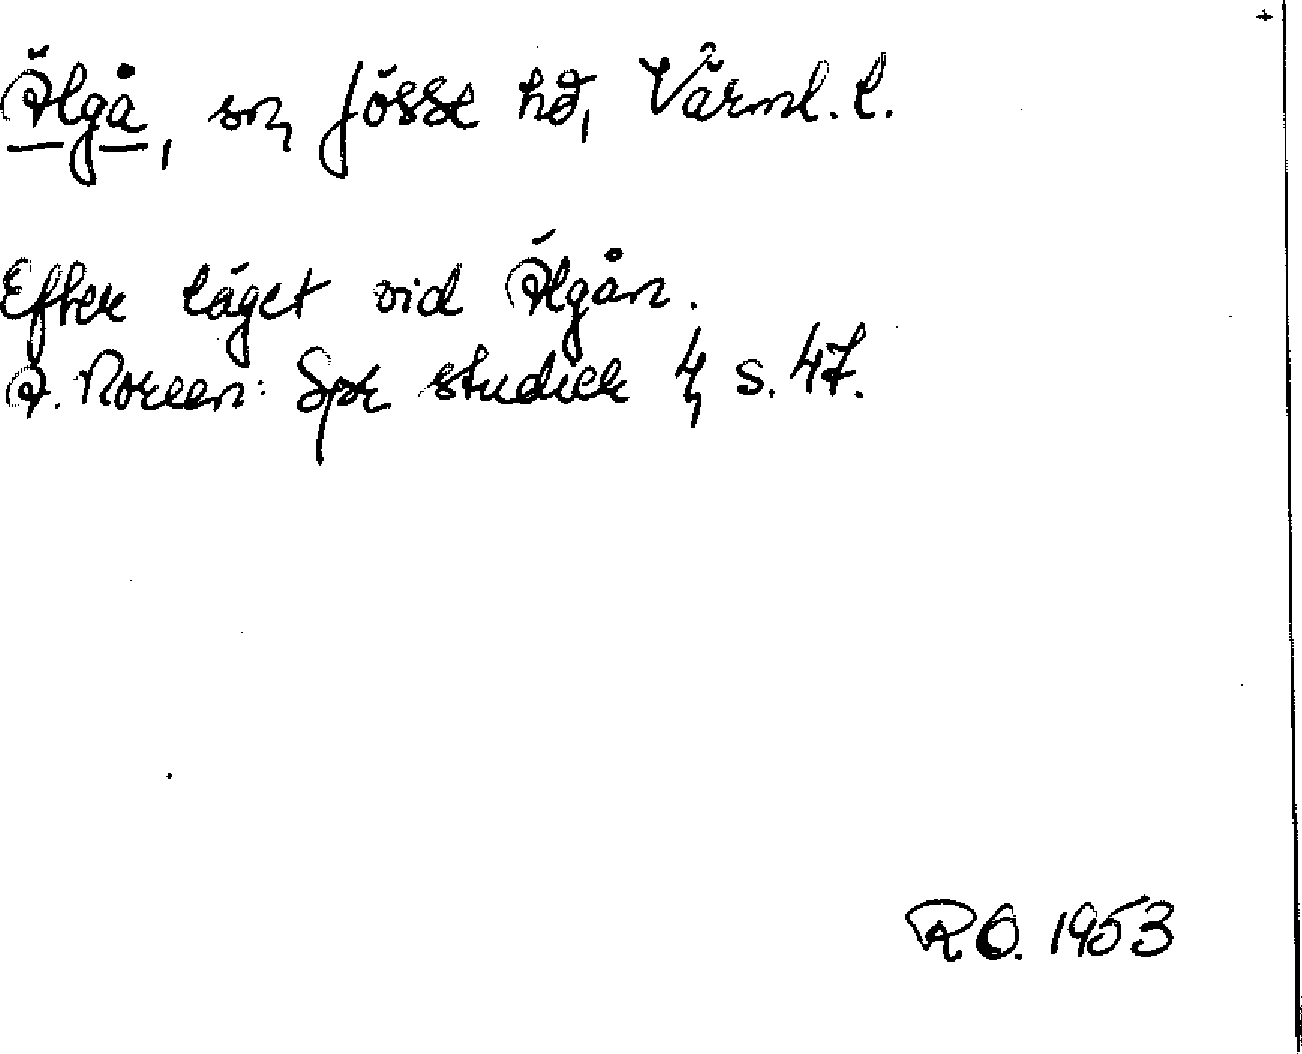 Älgå, sn, Jösse hd, Värml. l.
Efter läget vid Älgån.
A. Noreen: Spr studier 4, s. 47.
RO. 1953